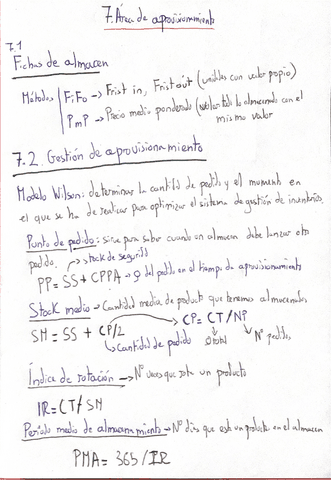 7. Área de aprovisionamiento
7.1
Fichas de almacen
Métodos FiFo → Frist in, Frist out (unidades con valor propio)
PmP → Precio medio ponderado ( todo lo almacenado con el
mismo valor
7.2. Gestión de aprovisionamiento
Modelo Wilson: determinar la cantidad de pedido y el momento en
el que se ha de realizar para optimizar el sistema de gestión de inventarios.
Punto de pedido: sirve para saber cuando un almacen debe lanzar otro
pedido. → stock de seguridad
PP = SS + CPPA → Q del pedido en el tiempo de aprovisionamiento
Stock medio → Cantidad media de producto que tenemos almacenados
SM = SS + CP/2 CP = CT / NP
↳ Cantidad de pedido Q total Nº pedidos
Índice de rotación → Nº veces que rota un producto
IR = CT / SM
Período medio de almacenamiento → Nº días que está un producto en el almacen
PMA = 365 / IR